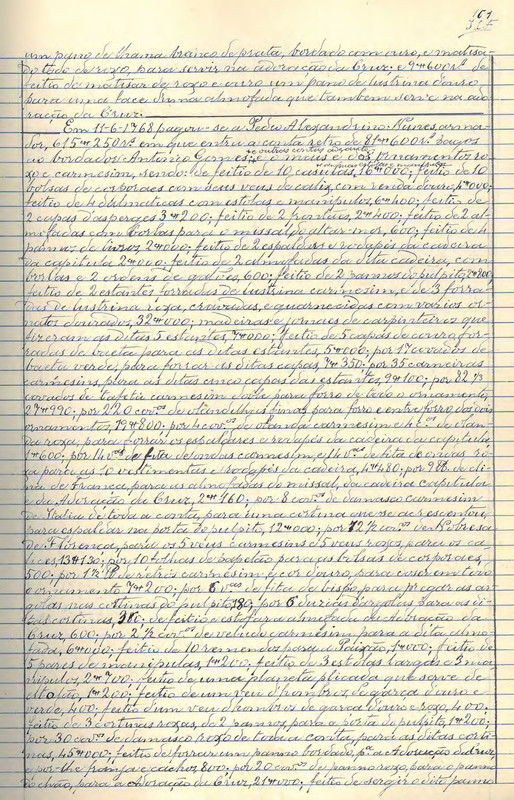 161
um pano de trama branco de prata, bordado com ouro, e matisa-
do todo de roxo, para servir na adoração da Cruz; e 9#600 rs. de
feitio de matisar de roxo e ouro um pano de lustrina d'ouro
para uma face d'uma almofada que tambem serve na ado-
ração da Cruz.
Em 11-6-1768 pagou-se a Pedro Alexandrino Nunes, arma-
dor, 615#250 rs. em que entra a conta retro de 81#600 rs. pagos
e outras contas
ao bordador Antonio Gomes; e o mais e dos ornamentos ro-
xo e carmesim, sendo: de feitio de 10 casulas, 16#000; feitio de 10
com suas estolas e manipulos
bolsas de corporaes com seus veus de calix, com renda d'ouro,
feitio de 4 dalmaticas com estolas e manipulos, 6#400; feitio de
2 capas d'asperges 3#200; feitio de 2 frontaes, 2#400; feitio de 2 al-
mofadas com borlas para o missal, do altar-mór, 600; feitio de 4
pannos de livros, 2#000; feitio de 2 espaldares e rodapés da cadeira
da capitula 2#000; feitio de 2 almofadas da dita cadeira, com
borlas e 2 ordens de galões, 600; feitio de 2 pannos do pulpito, 2#200
feitio de 2 estantes forradas de lustrina carmesim, e de 3 forra-
das de lustrina roxa, cravadas, e guarnecidas com varios or-
natos dourados, 32#000; madeiras e jornaes de carpinteiros que
fizeram as ditas 5 estantes, #000; feitio de 5 capas de couro for-
radas de baeta para as ditas estantes, 5#000; por 17 covados de
baeta verde, para forrar as ditas capas, 7#350; por 35 carneiras
carmesins, para as ditas cinco capas das estantes, 9#100; por 82 2/3
covados de tafetá carmesim dobte para forro de todo o ornamento,
27#990; por 220 covos de olandilhas finas para forro e entreforro dos dois
ornamentos, 19#800; por 4 covos de olanda carmesim e 4 covos de olan-
da roxa, para forrar os espaldares e rodapés da cadeira da capitula,
1#600; por 14 vas de fita de ondas carmesim, e 14 vas de fita de ondas ro-
xa para as 10 vestimentas e rodapés da cadeira, 4#480; por 9 de cli-
na de França, para as almofadas do missal, da cadeira capitular
e da Adoração da Cruz, 2#160; por 8 covos de damasco carmesim
de Italia de toda a conta, para uma cortina que se acrescentou,
para espaldar na porta do pulpito, 12#000; por 12 1/2 covos de nobresa
de Florença, para os 5 véus carmesins e 5 veus roxos, para os ca-
lices, 13#130; por 10 folhas de papelão para as bolsas de corporaes,
500; por 1 de retroz carmesim e cor d'ouro, para coser em todo
o ornamento 7#200; por 6 vas de fita de bispo, para pregar as ar-
golas nas cortinas do pulpito, 180; por 6 duzias d'argolas para as di-
tas cortinas, 360; de feitio e estofo na almofada da Adoração da
Cruz, 600; por 2 1/2 covos de veludo carmesim para a dita almo-
fada, 6#000; feitio de 10 ramendos para a Paixão, 1#000; feitio de
5 pares de manipulos, 1#200; feitio de 3 estolas largas e 3 ma-
nipulos, 2#700; feitio de uma planeta plicada que serve de
estolão, 1#200; feitio de um veu d'hombros de garça d'ouro e
verde, 400; feitio d'um veu d'hombros de garça d'ouro e roxo, 400;
feitio de 3 cortinas roxas, de 2 pannos, para a porta do pulpito, 1#200;
por 30 covos de damasco roxo de toda a conta, para as ditas corti-
nas, 45#000; feitio de forrar um panno bordado, pa. a Adoração da Cruz
e por-lhe franja e cachos, 800; por 20 covos de panno roxo, para o panno
do chão, para a Adoração da Cruz, 21#000; feitio de sergir o dito panno